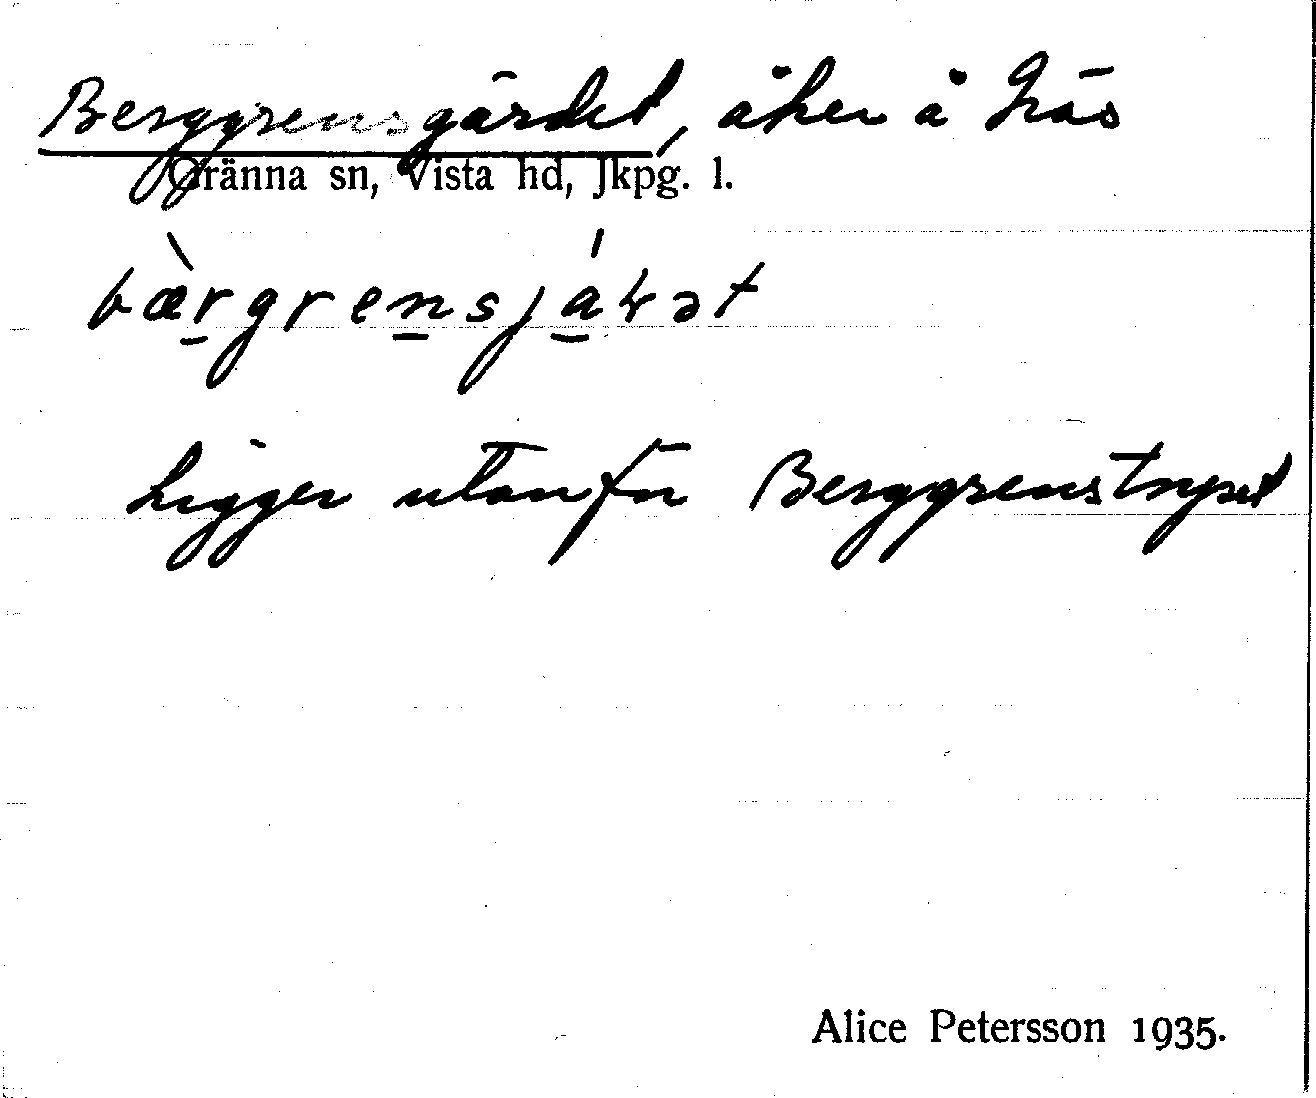 Berggrensgärdet, åker å Näs
Gränna sn, Vista hd, Jkpg. l.
Ligger utanför Berggrenstorpet
Alice Petersson 1935.